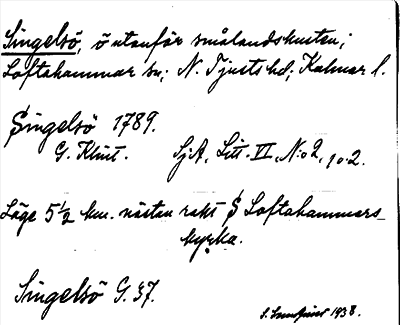 Singelsö, ö utanför smålandskusten;
Loftahammar sn; N. Tjusts hd; Kalmar l.
Singelsö 1789.
G. Klint. SjA, Litt. VI, N:o 2, 10:2.
Läge 5 1/2 km. nästan rakt S Loftahammars
kyrka.
Singelsö G. 37.
1938.